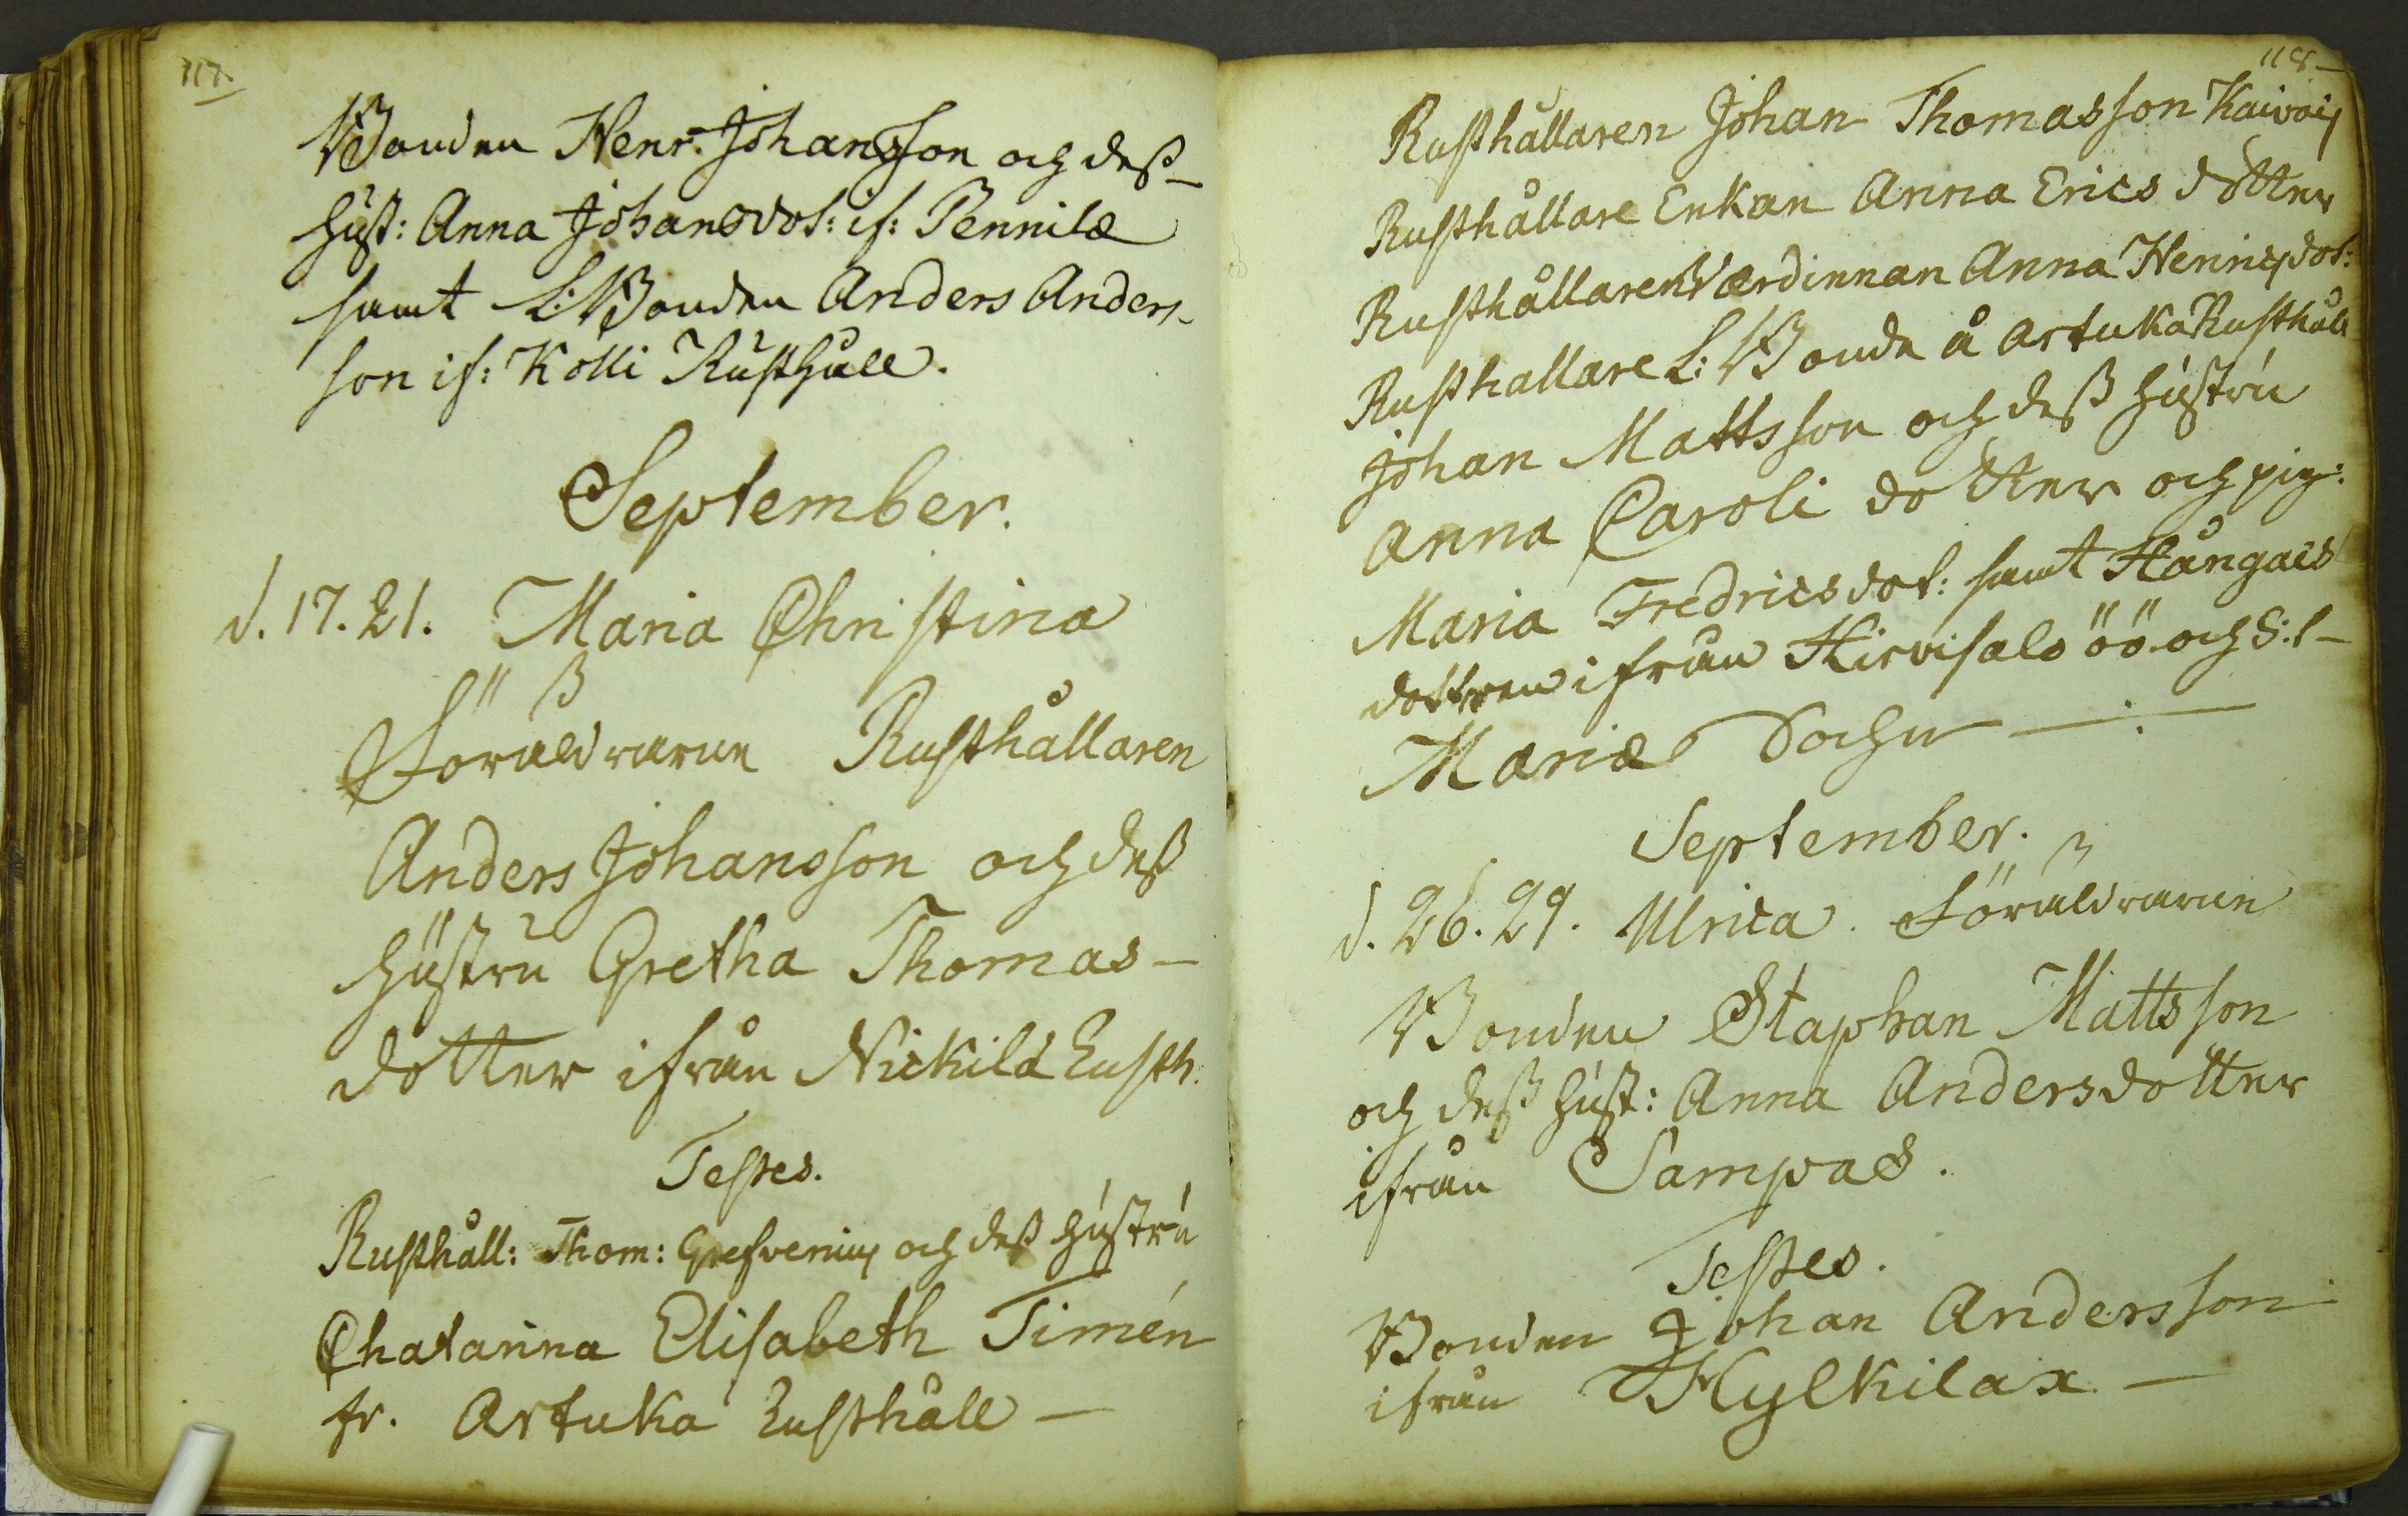 117.
Bonden Henr: Johansson och dess
hust: Anna Johansdot: if: Pennilæ
samt L: Bonden Anders Anders-
son if: Kolli Rusthåll.
September.
d. 17. 21. Maria Christina
Föräldrarne Rusthållaren
Anders Johansson och dess
hustru Gretha Thomas-
dotter ifrån Nickilä Rusth:
Testes.
Rusthåll: Thom: Grefvenius och dess hustru
Chatarina Elisabeth Timén
fr. Artuka Rusthåll
118
Rusthållaren Johan Thomasson
Rusthållare Enkan Anna Erics dotter
Rusthållare Værdinnan Anna Henricsdot:
Rusthållare L: Bonde å Artuka Rusthåll
Johan Mattsson och dess hustru
Anna Caroli dotter och pig:
Maria Fredricsdot: samt
dottren ifrån Hirvisalo öö. och S:t
Mariæ Sochn
September.
d. 26. 29. Ulrica. Föräldrarne
Bonden Staphan Mattsson
och dess hust: Anna Andersdotter
ifrån Sampas.
Testes.
Bonden Johan Andersson
ifrån Kylkilax